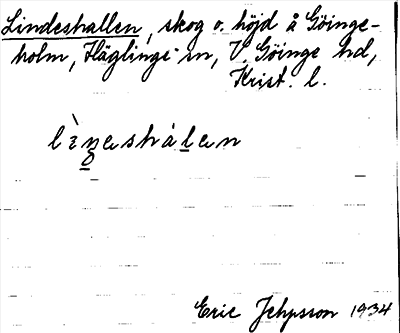 Lindeshallen, skog o. höjd å Göinge-
holm, Häglinge sn, V. Göinge hd,
Krist. l.
Eric Jehpsson 1934